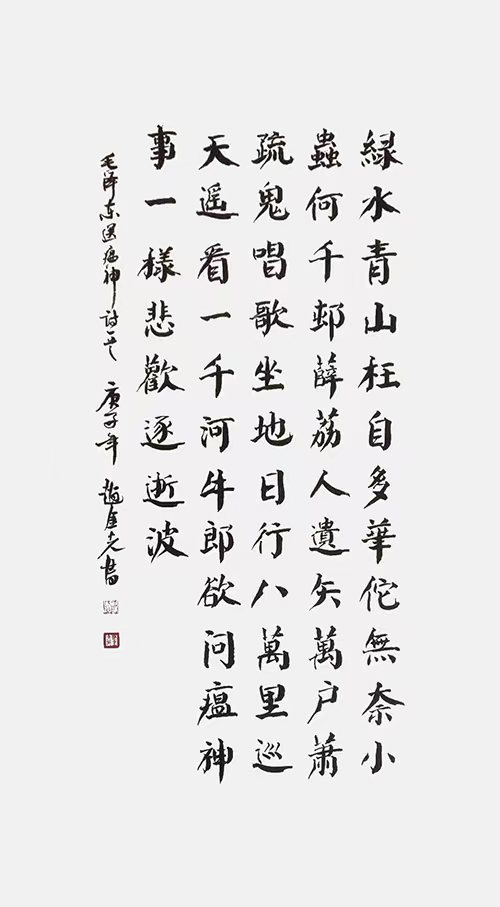 緑水青山枉自多華佗無奈小
蟲何千邨薜荔人遺矢萬户蕭
疏鬼唱歌坐地日行八萬里巡
天遥看一千河牛郎欲問瘟神
事一樣悲歡逐逝波
毛泽东送瘟神诗 庚子年 趙金光書